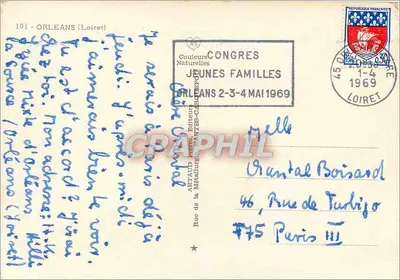 101 - ORLEANS (Loiret)
Couleurs
Naturelles
CONGRES
JEUNES FAMILLES
ORLEANS 2-3-4 MAI 1969
REPUBLIQUE FRANCAISE
0,30
45
1-4
1969
LOIRET
Chère Chantal
Je serais à Paris déjà
jeudi l'après-midi
j'aimerais bien te voir.
Tu es d'accord? J'irai
chez toi. Mon adresse:
Lycée Mixte d'Orléans
La Source / Orléans (Loiret)
ARTAUD
Editeurs
Rue de la Métallurgie
NANTES
CPAPHIL
Melle
Chantal Boisard
46, Rue de Turbigo
F75 Paris III